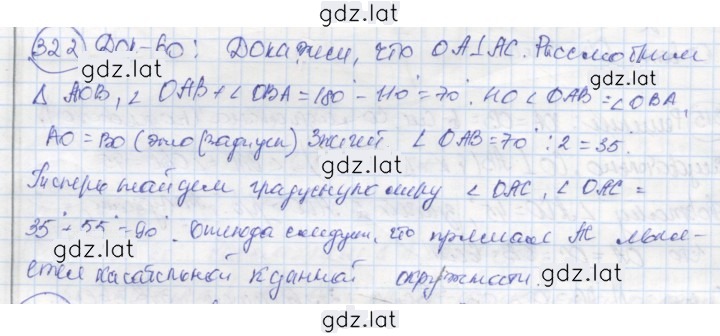 gdz.lat
322 Док-во: Докажем, что OA⊥AC. Рассмотрим
gdz.lat
gdz.lat
Δ AOB, ∠ OAB + ∠ OBA = 180° - 110° = 70°. но ∠ OAB = ∠ OBA,
gdz.lat
AO = BO (это радиусы) Значит ∠ OAB = 70° : 2 = 35°.
gdz.lat
gdz.lat
Теперь найдем градусную меру ∠ OAC, ∠ OAC =
35° + 55° = 90°. Отсюда следует, что прямая AC явля-
gdz.lat
gdz.lat
ется касательной к данной окружности.
gdz.lat